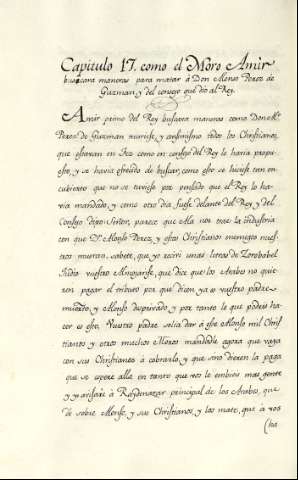 Capitulo 17. como el Moro Amir
buscara maneras para matar á Don Alonso Perez de
Guzman, y del consejo que dió al Rey.
Amir primo del Rey buscava maneras como Don Alº
Perez de Guzman muriese, y consumiese todos los Christianos,
que estavan en Fez como en consejo del Rey le havia propu-
esto, y se havia ofrecido de buscar, como esto se hiciese tan en-
cubierto que no se tuviese por pensado que el Rey lo ha-
via mandado, y como otro dia fuese delante del Rey, y del
Consejo dixo: Señor, parece que Alá nos trae la industria
con que D. Alonso Perez, y estos Christianos enemigos nues-
tros mueran, sabete, que yo recivi unas letras de Zorobabel
Judio vuestro Almojarife, que dice que los Arabes no quie-
ren pagar el tributo por que dicen, ya es vuestro padre
muerto, y Alonso despedido, y por tanto lo que podres ha-
cer es esto. Vuestro padre solia dar á este Alonso mil Chris-
tianos, y otros muchos Moros mandadle agora que vaya
con sus Christianos a cobrarlo, y que sino dieren la paga
que se espere alla en tanto que vos le embiais mas gente
y avisaré á Raydenazar principal de los Arabes, que
dé sobre Alonso, y sus Christianos, y los mate, que á vos